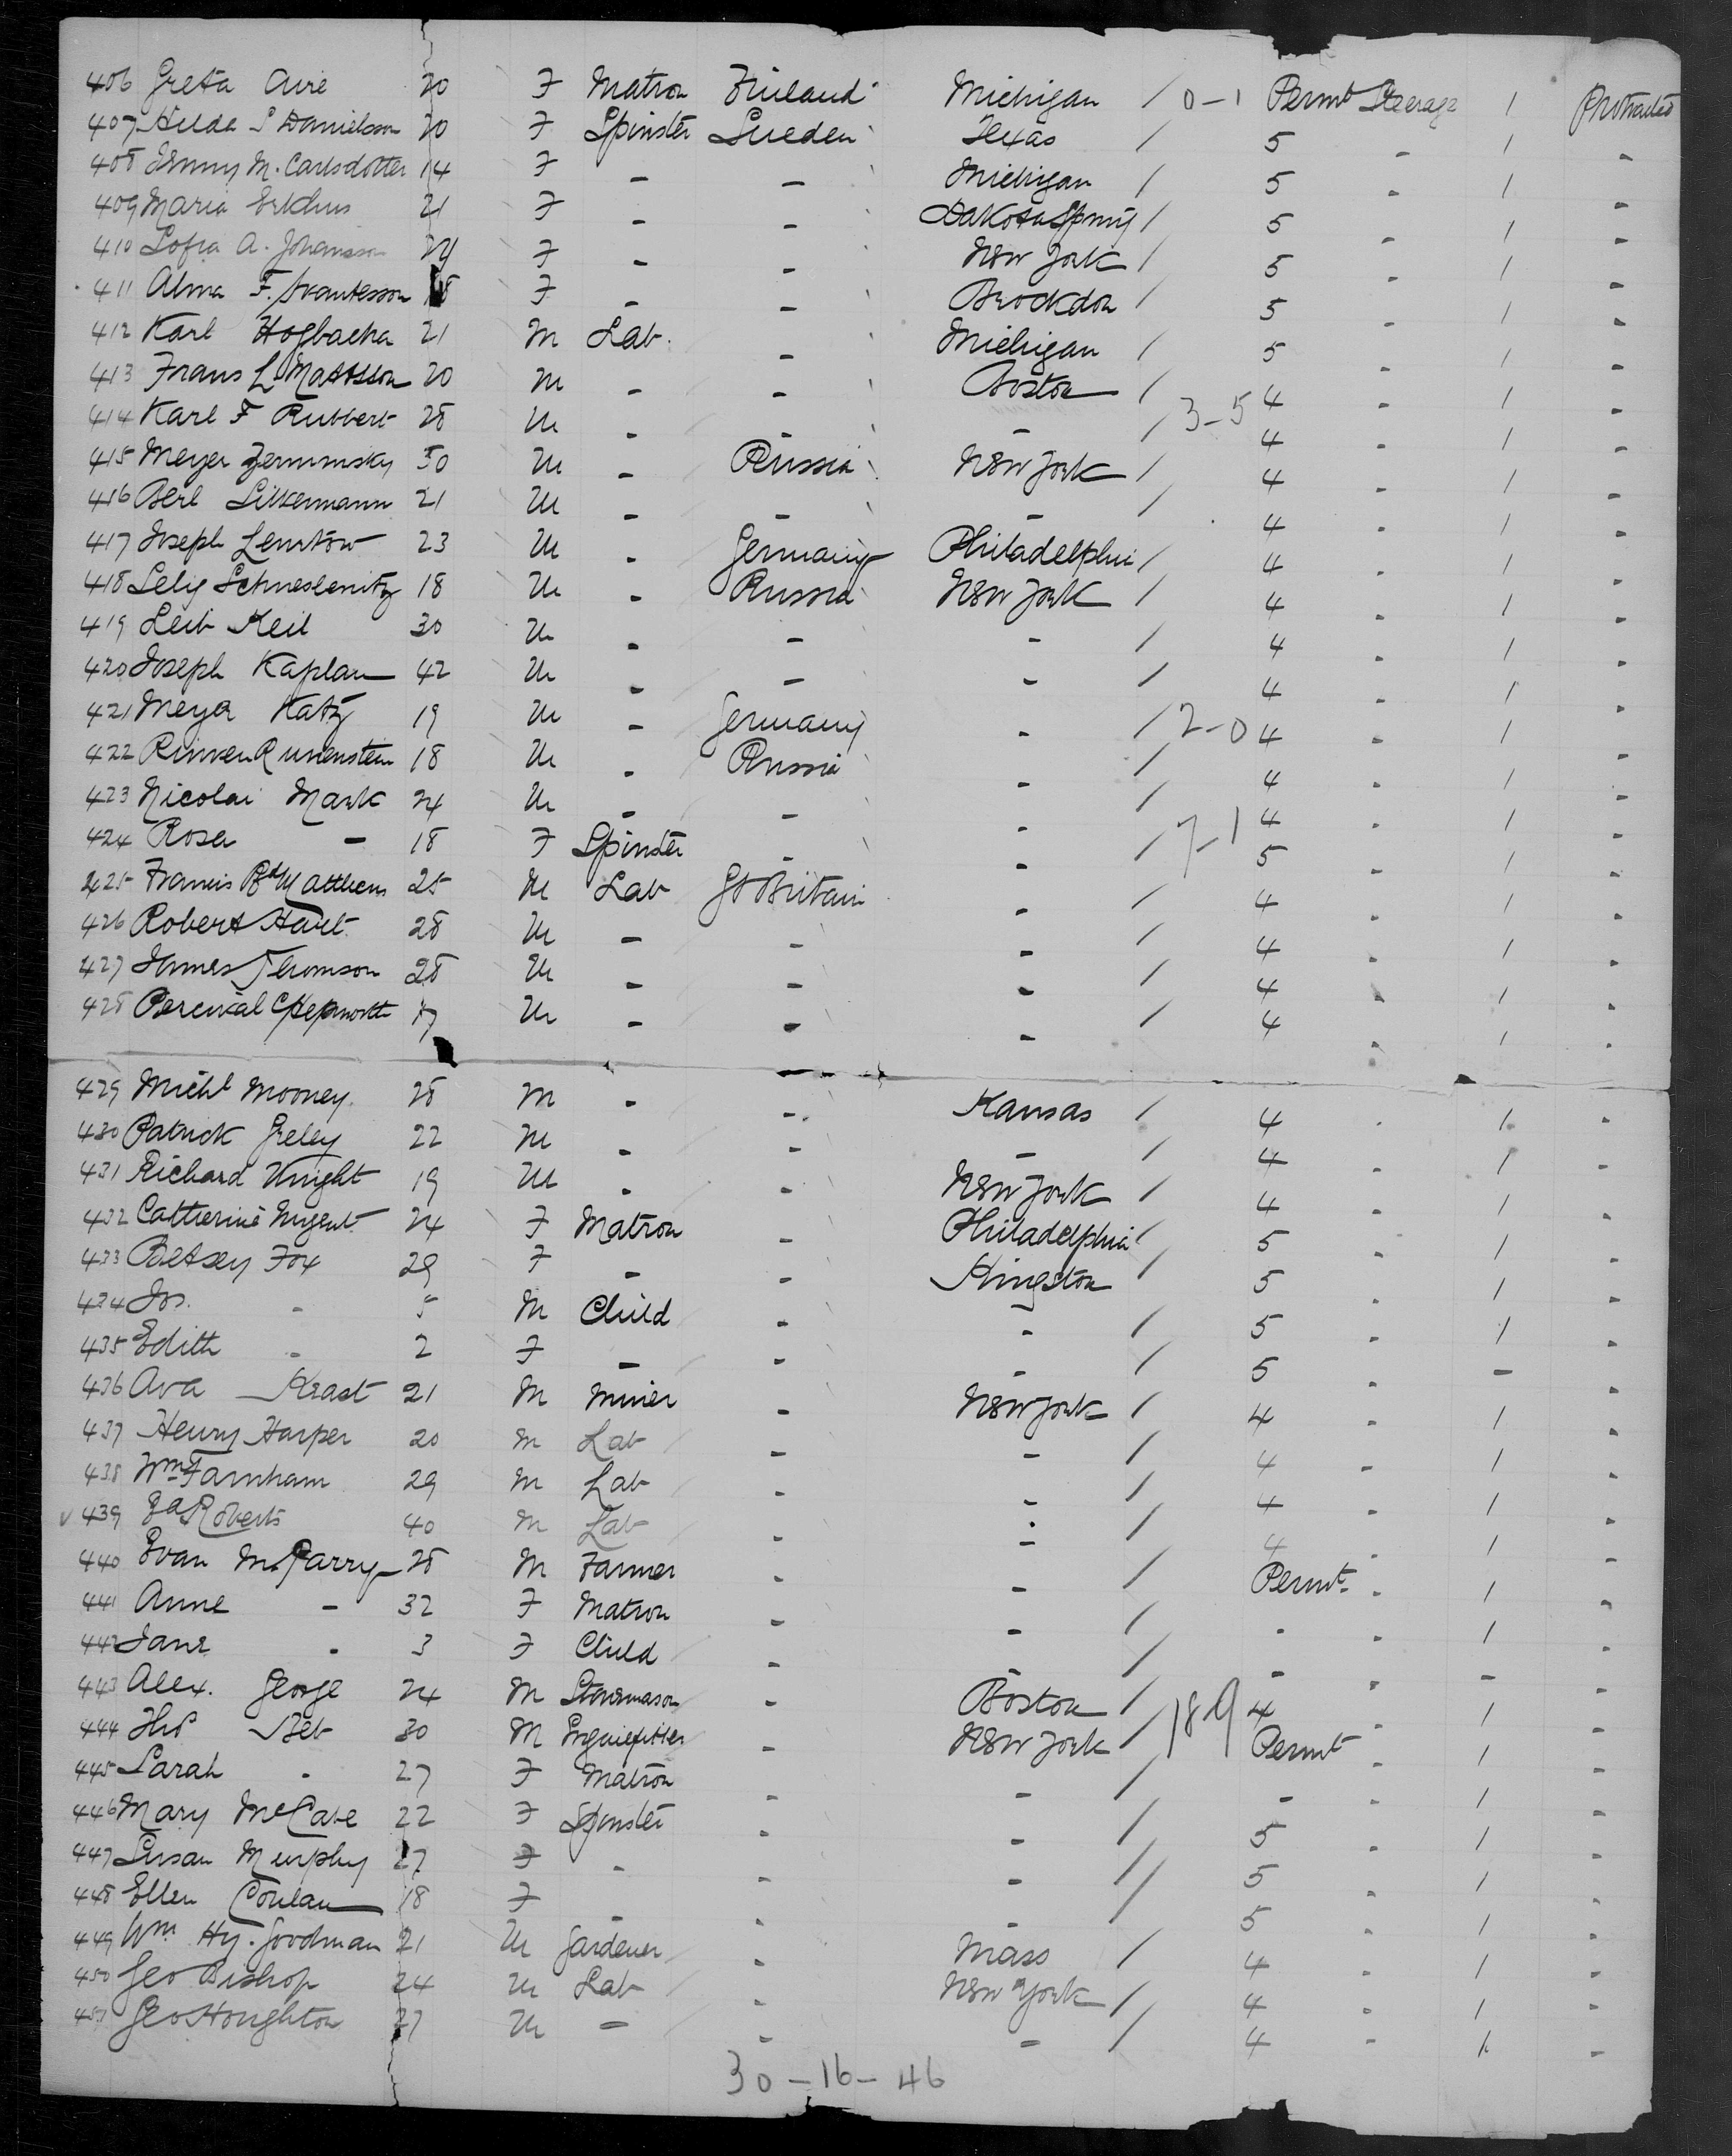 406 Greta Aire 20 F Matron Finland Michigan / 0-1 Permt Steerage 1 Protracted
407 Hilda S Danielsson 20 F Spinster Sueden Texas / 5 - 1 -
408 Jenny M. Carlsdotter 14 F - - Michigan / 5 - 1 -
409 Maria 21 F - - Dakota / 5 - 1 -
410 Sofia A. Johansson 24 F - - New York / 5 - 1 -
411 Alma F. Svantesson 18 F - - Brockdon / 5 - 1 -
412 Karl Hogbacka 21 M Lab. - Michigan / 5 - 1 -
413 Frans L Mattsson 20 M - - Boston / 4 - 1 -
414 Karl F Rubbert 28 M - - - / 3-5 4 - 1 -
415 Meyer 30 M - Russia New York / 4 - 1 -
416 Berl 21 M - - - / 4 - 1 -
417 Joseph 23 M - Germany Philadelphia / 4 - 1 -
418 Selig 18 M - Russia New York / 4 - 1 -
419 Leib Keil 30 M - - - / 4 - 1 -
420 Joseph Kaplan 42 M - - - / 4 - 1 -
421 Meyer Katz 19 M - Germany - / 2-0 4 - 1 -
422 18 M - Russia - / 4 - 1 -
423 Nicolai Mark 24 M - - - / 4 - 1 -
424 Rosa - 18 F Spinster - - / 7-1 5 - 1 -
425 Francis Bd Matthews 25 M Lab Gt Britain - / 4 - 1 -
426 Robert Hart 28 M - - - / 4 - 1 -
427 James Thomson 28 M - - - / 4 - 1 -
428 Percival C Hepworth 17 M - - - / 4 - 1 -
429 Michl Mooney 28 M - - Kansas / 4 - 1 -
430 Patrick Greley 22 M - - - / 4 - 1 -
431 Richard Knight 19 M - - New York / 4 - 1 -
432 Catherine Nugent 24 F Matron - Philadelphia / 5 - 1 -
433 Betsey Fox 29 F - - Kingston / 5 - 1 -
434 Jos. - 5 M Child - - / 5 - 1 -
435 Edith - 2 F - - - / 5 - - -
436 Ava Keast 21 M Miner - New York / 4 - 1 -
437 Henry Harper 20 M Lab - - / 4 - 1 -
438 Wm Farnham 29 M Lab - - / 4 - 1 -
439 Ed Roberts 40 M Lab - - / 4 - 1 -
440 Evan M. Parry 28 M Farmer - - / Permt - 1 -
441 Anne - 32 F Matron - - / - - 1 -
442 Jane - 3 F Child - - / - - - -
443 Alex. George 24 M Stonemason - Boston / 4 - 1 -
444 Ths 30 M Enginefitter - New York / 18-9 Permt - 1 -
445 Sarah - 27 F Matron - - / - - 1 -
446 Mary McCabe 22 F Spinster - - / 5 - 1 -
447 Susan Murphy 27 F - - - / 5 - 1 -
448 Ellen Conlan 18 F - - - / 5 - 1 -
449 Wm Hy. Goodman 21 M Gardener - Mass / 4 - 1 -
450 Geo Bishop 24 M Lab - New York / 4 - 1 -
451 Geo Houghton 27 M - - - / 4 - 1 -
30-16-46